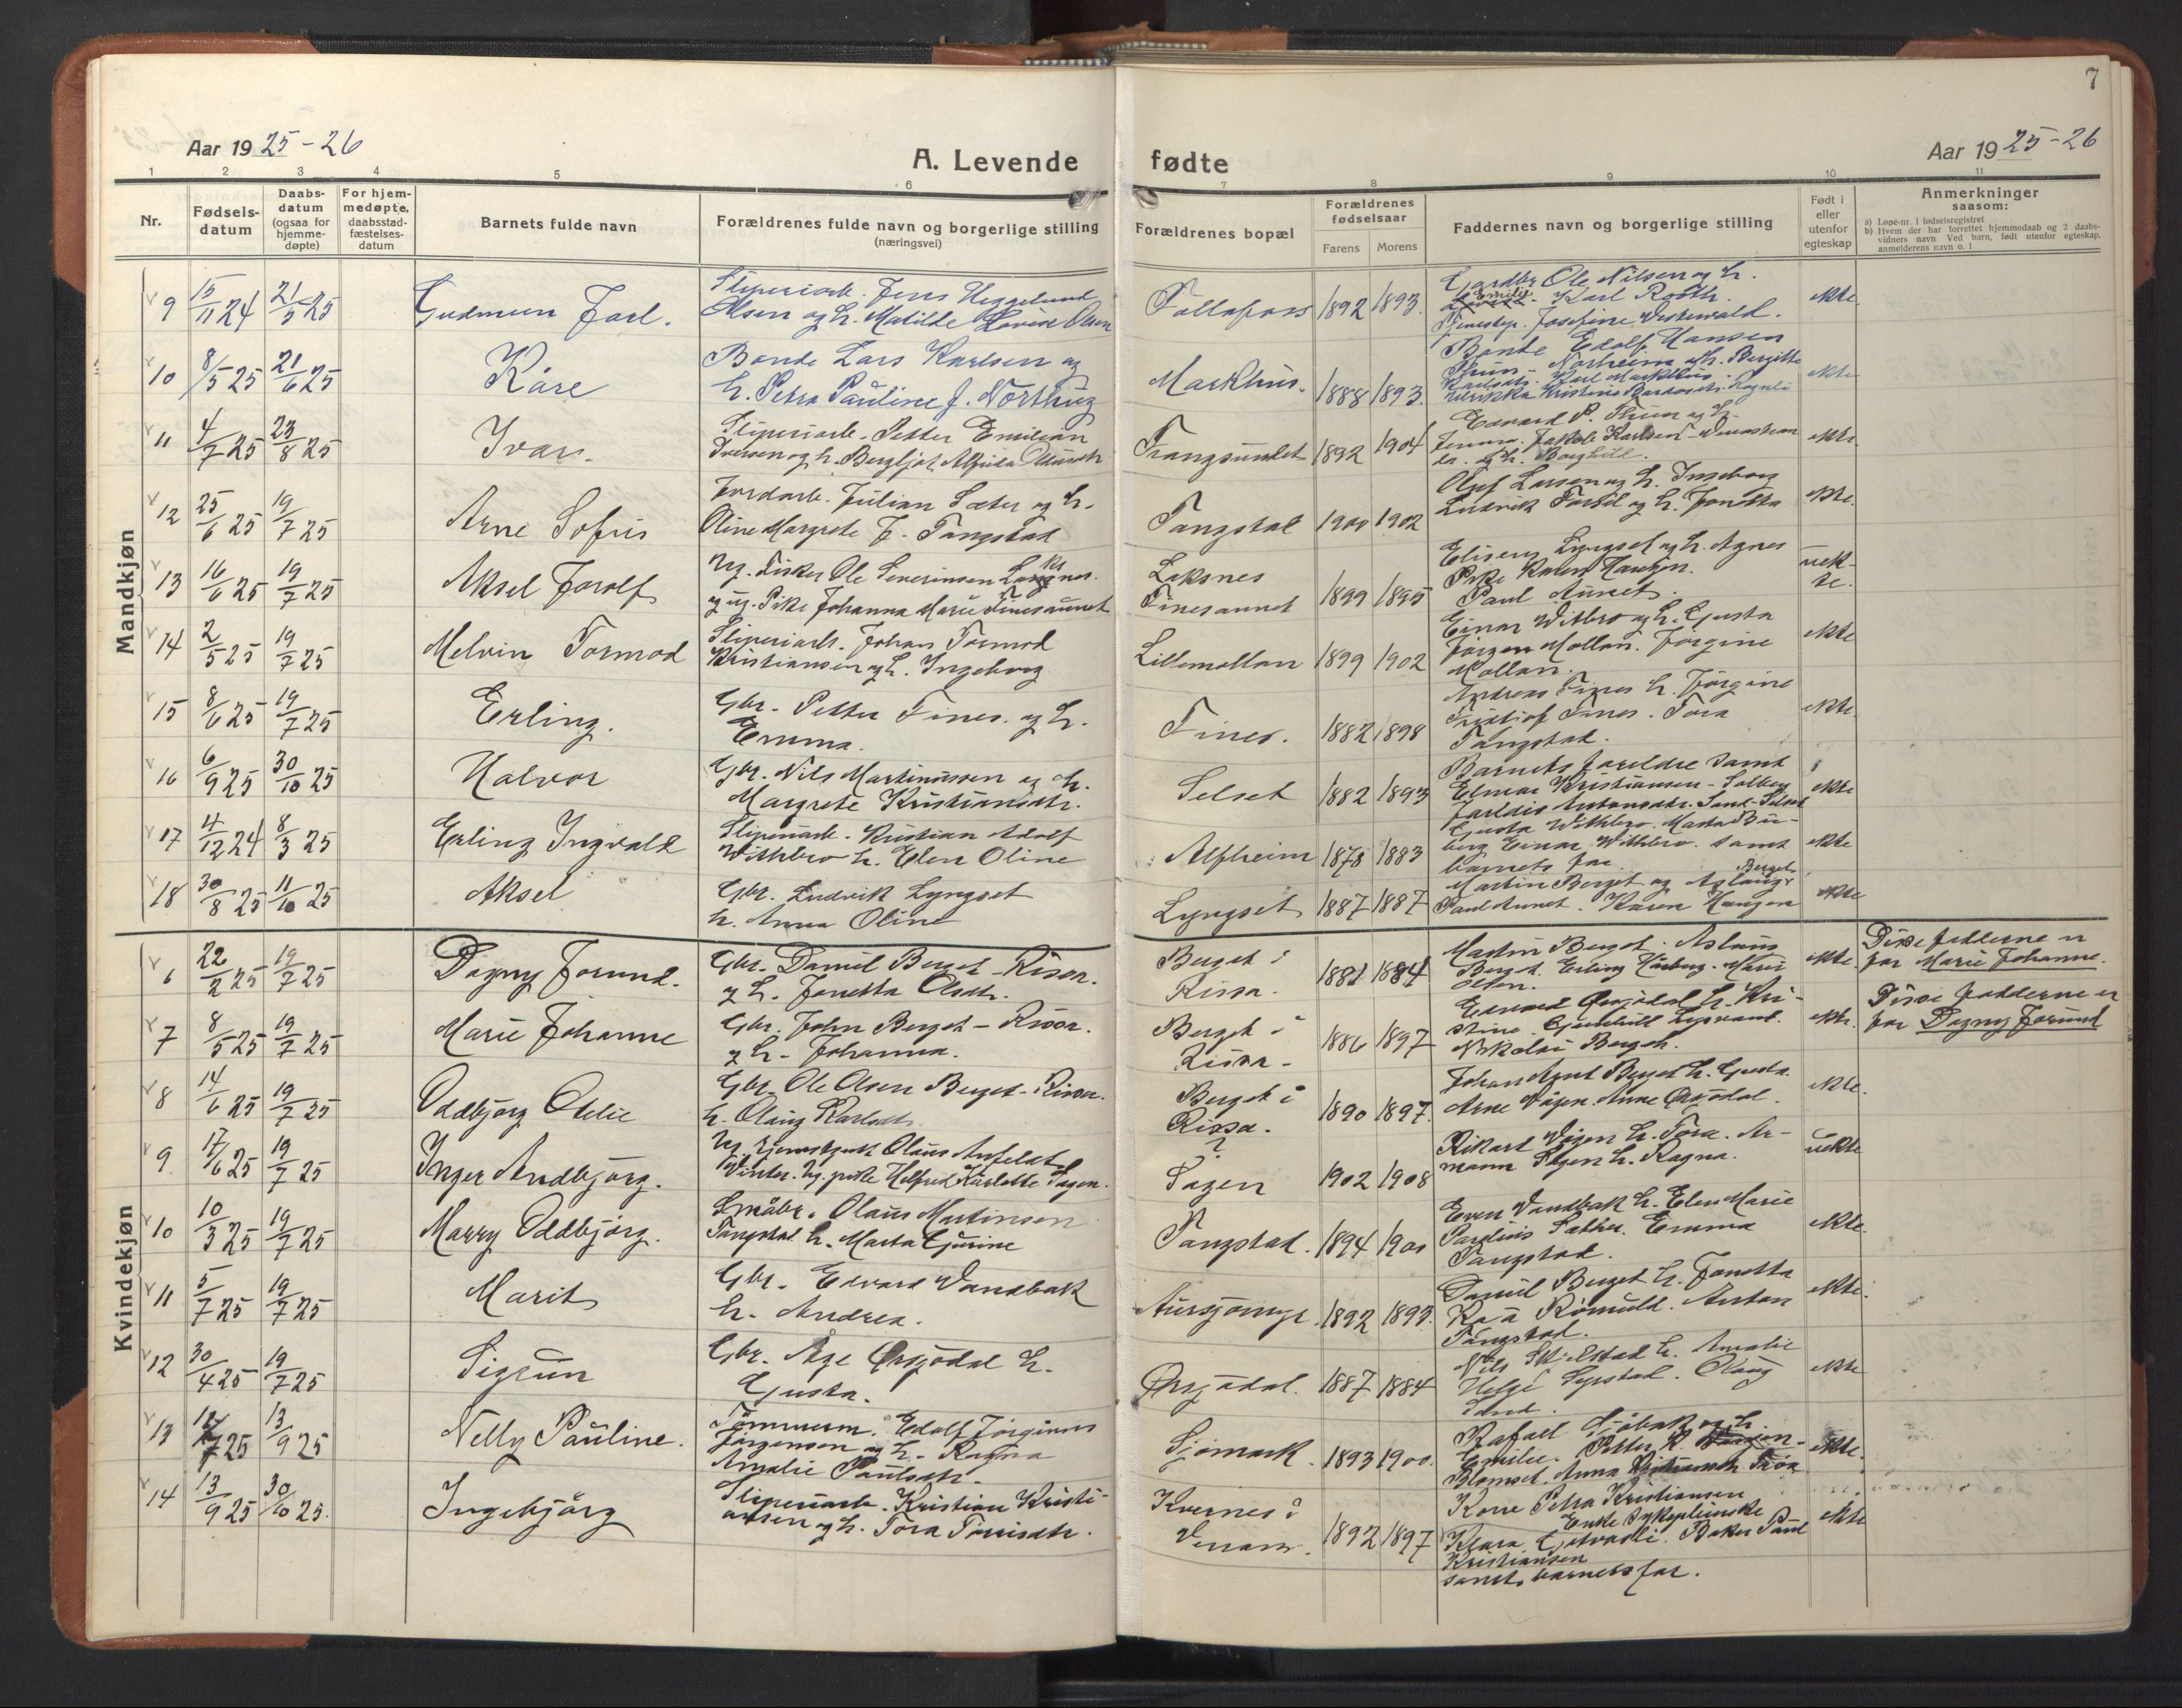 7
Aar 1925-26
A. Levende
fødte
Aar 1925-26
1 2 3 4 5 6 7 8 9 10 11
Nr.
Fødsels-
datum
Daabs-
datum
(ogsaa for
hjemme-
døpte)
For hjem-
medøpte,
daabsstad-
fæstelses-
datum
Barnets fulde navn
Forældrenes fulde navn og borgerlige stilling
(næringsvei)
Forældrenes bopæl
Forældrenes
fødselsaar
Farens Morens
Faddernes navn og borgerlige stilling
Født i
eller
utenfor
egteskap
Anmerkninger
saasom:
a) Løpe-nr. i fødselsregistret
b) Hvem der har forrettet hjemmedaab og 2 daabs-
vidners navn Ved barn, født utenfor egteskap,
anmelderens navn o. l
Mandkjøn
9 15/11 24 21/5 25 Gudmun Jarl.
Sliperiarb. Jens Heggelund
Olsen og h. Matilde Lovise Olsen
Follafoss 1892 1893.
Gardbr Ole Nilsen og h.
Emilie - Karl Rooth.
Tjenestep. Josefine Vesterwald.
ekte
10 8/5 25 21/6 25 Kåre
Bonde Lars Karlsen og
h. Petra Pauline f. Northug
Markhus. 1888 1893.
Bonde Edolf Hansen
ekte
11 4/7 25 23/8 25 Ivar.
Sliperiarb. Petter Emilian
Iversen og h. Bergljot
Trangsundet 1892 1904
Edvard P. Thun og h.
og h. Borghild.
ekte
12 25/6 25 19/7 25 Arne Sofus
Jordarb. Julian Sæter og h.
Oline Margrete f. Tangstad
Tangstad 1900 1902
Olof Larsen og h. Ingeborg
Ludvik og h. Jonetta
ekte.
13 16/6 25 19/7 25 Aksel Jarolf
Ug. Fisker Ole Severinsen Laksnes.
og ug. Pike Johanna Marie Finesaunet
Laksnes
Finesaunet 1899 1895
Eliseus Lyngset og h. Agnes
Pike Karen Haugen.
Paul Aunet.
uek-
te.
14 2/5 25 19/7 25 Melvin Tormod
Sliperiarb. Johan Tormod
Kristiansen og h. Ingeborg
Lillemollan 1899 1902
Einar Witbro og h. Gjusta
Jørgen Mollan. Jørgine
Mollan.
ekte
15 8/6 25 19/7 25 Erling.
Gbr. Petter Fines. og h.
Emma.
Fines. 1882 1898
Andreas Fines h. Jørgine
Fritiof Fines. Tora
Tangstad.
ekte.
16 6/9 25 30/10 25 Halvor
Gbr. Nils Martinussen og h.
Margrete Kristiansdtr.
Selset 1882 1893
Barnets foreldre samt
Elmar Kristiansen - Solberg
Jarldis Antonsdtr.
ekte
17 4/12 24 8/3 25 Erling Ingvald
Sliperiarb. Kristian Adolf
Withbro h. Elen Oline
Alfheim 1878 1883
Gjusta Withbro. Marta Bu-
berg Einar Withbro. samt
barnets far
ekte
18 30/8 25 11/10 25 Aksel
Gbr. Ludvik Lyngset
h. Anna Oline
Lyngset 1887 1887
Martin Berget og Aslaug Berget
Paul Aunet. Karen Haugen
ekte
Kvindekjøn
6 22/2 25 19/7 25 Dagny Jorund.
Gbr. Daniel Berget - Rissa.
og h. Jonetta Olsdtr.
Berget i
Rissa. 1881 1884
Martin Berget. Aslaug
Berget. Erling Marie
Olsen.
ekte.
Disse fadderne er
for Marie Johanne.
7 8/5 25 19/7 25 Marie Johanne
Gbr. John Berget - Rissa.
og h. Johanna.
Berget i
Rissa. 1886 1897
Edvard Ørsjødal h. Kri-
stine. Gunhill
Nikolai Berget.
ekte.
Disse fadderne er
for Dagny Jorund
8 14/6 25 19/7 25 Oddbjørg Otelie
Gbr. Ole Olsen Berget - Rissa.
h. Olaug Karlsdtr.
Berget i
Rissa. 1890 1897.
Johan Arnt Berget h. Gusta.
Arne Vågen. Anne Ørsjødal.
ekte.
9 17/6 25 19/7 25 Inger Andbjørg.
Ug. Olaus Anfeldt
Vinter. Ug. pike Helfred Karlotte Sagen.
?
Sagen 1902 1908
Rikart Vågen h. Tora. Ar-
mann Sagen h. Ragna.
uekte
10 10/3 25 19/7 25 Marry Oddbjørg.
Småbr. Olaus Martinsen
Tangstad h. Marta Gjurine
Tangstad. 1894 1900
Even Vandbak h. Elen Marie
Paulius Sæther. Emma
Tangstad.
ekte.
11 5/7 25 19/7 25 Marit
Gbr. Edvard Vandbak
h. Andrea.
Aursjømyr. 1892 1892.
Daniel Berget h. Jonetta
Anton
Tangstad.
ekte.
12 30/4 25 19/7 25 Sigrun
Gbr. Åge Ørsjødal h.
Gjusta.
Ørsjødal. 1887 1884
Nils h. Amalie
Helge Olaug
Sand.
ekte
13 7 25 13/9 25 Nelly Pauline.
Tømmerm. Edolf Jørginus
Jørgensen og h. Ragna
Amalie Paulsdtr.
Sjømark. 1893 1900.
Rafael Sjøbak og h.
Emilie. Petter K.
Blomset. Anna
ekte.
14 13/9 25 30/10 25. Ingebjørg
Sliperiarb. Kristian Kristi-
ansen og h. Tora Tønisdtr.
Kvernes i
Verran. 1892 1897
Kone Petra Kristiansen
Enke Sykepleierske
Klara Baker Paul
Kristiansen
samt barnets far.
ekte